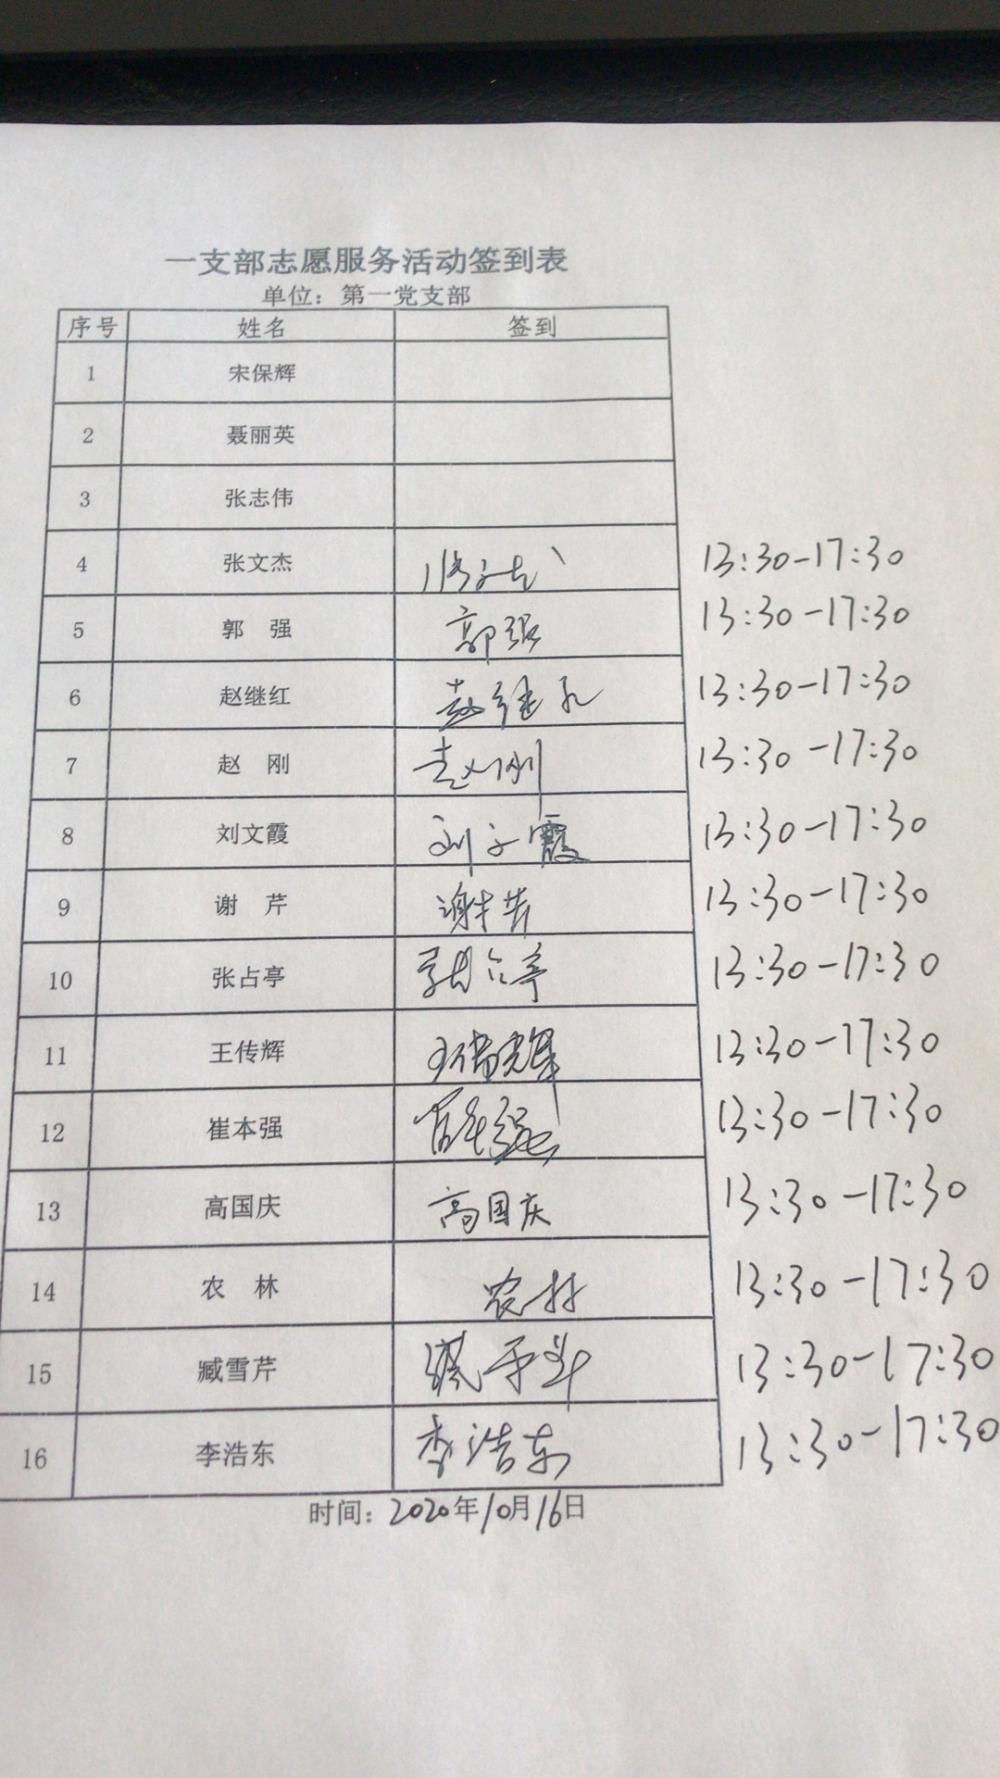 一支部志愿服务活动签到表
单位：第一党支部
序号 姓名 签到
1 宋保辉
2 聂丽英
3 张志伟
4 张文杰 张文杰 13:30-17:30
5 郭 强 郭强 13:30-17:30
6 赵继红 赵继红 13:30-17:30
7 赵 刚 赵刚 13:30-17:30
8 刘文霞 刘文霞 13:30-17:30
9 谢 芹 谢芹 13:30-17:30
10 张占亭 张占亭 13:30-17:30
11 王传辉 王传辉 13:30-17:30
12 崔本强 崔本强 13:30-17:30
13 高国庆 高国庆 13:30-17:30
14 农 林 农林 13:30-17:30
15 臧雪芹 13:30-17:30
16 李浩东 李浩东 13:30-17:30
时间：2020年10月16日